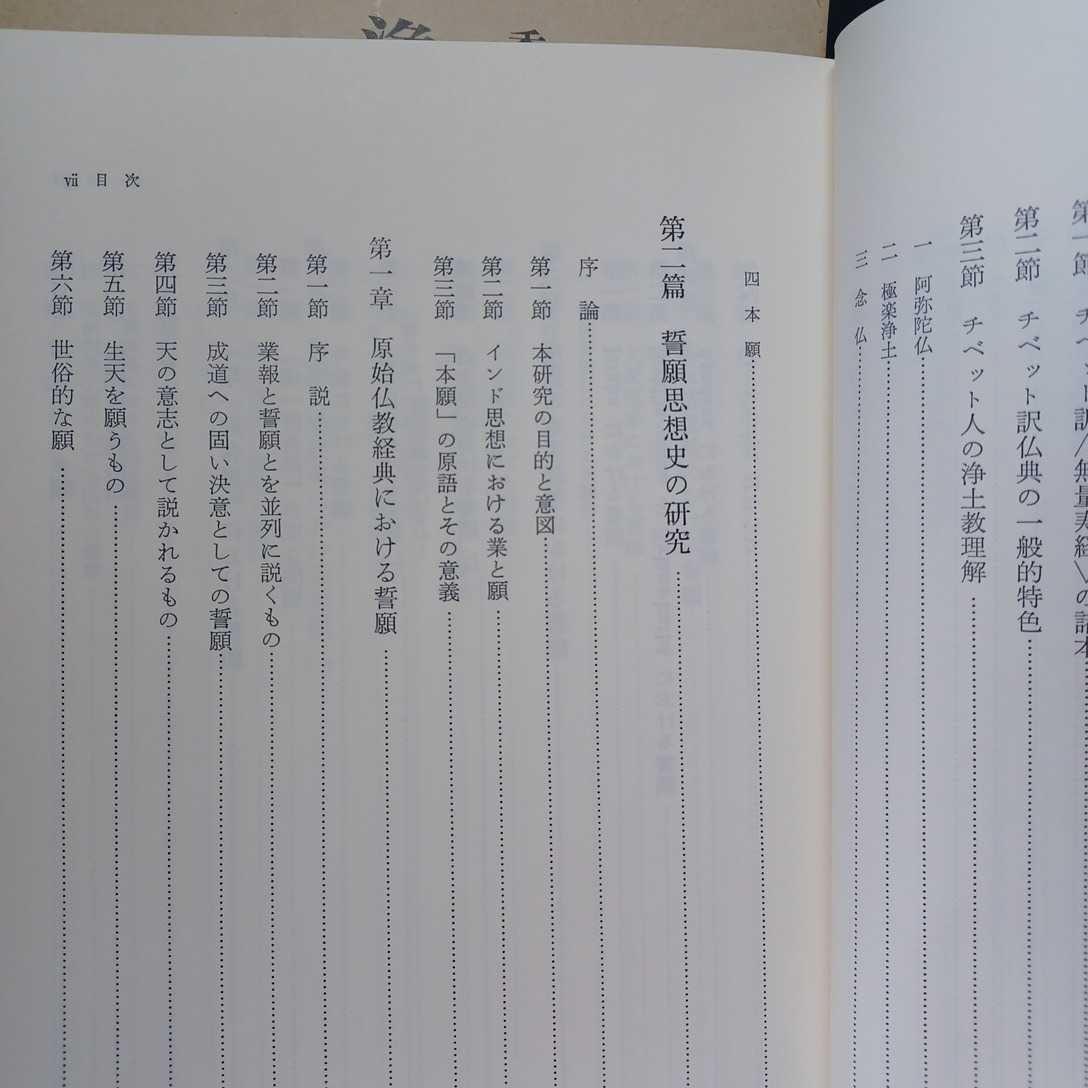 第二節 チベット訳仏典の一般的特色
第三節 チベット人の浄土教理解
一 阿弥陀仏
二 極楽浄土
三 念仏
四 本願
第二篇 誓願思想史の研究
序論
第一節 本研究の目的と意図
第二節 インド思想における業と願
第三節 「本願」の原語とその意義
第一章 原始仏教経典における誓願
第一節 序説
第二節 業報と誓願とを並列に説くもの
第三節 成道への固い決意としての誓願
第四節 天の意志として説かれるもの
第五節 生天を願うもの
第六節 世俗的な願
vii 目次